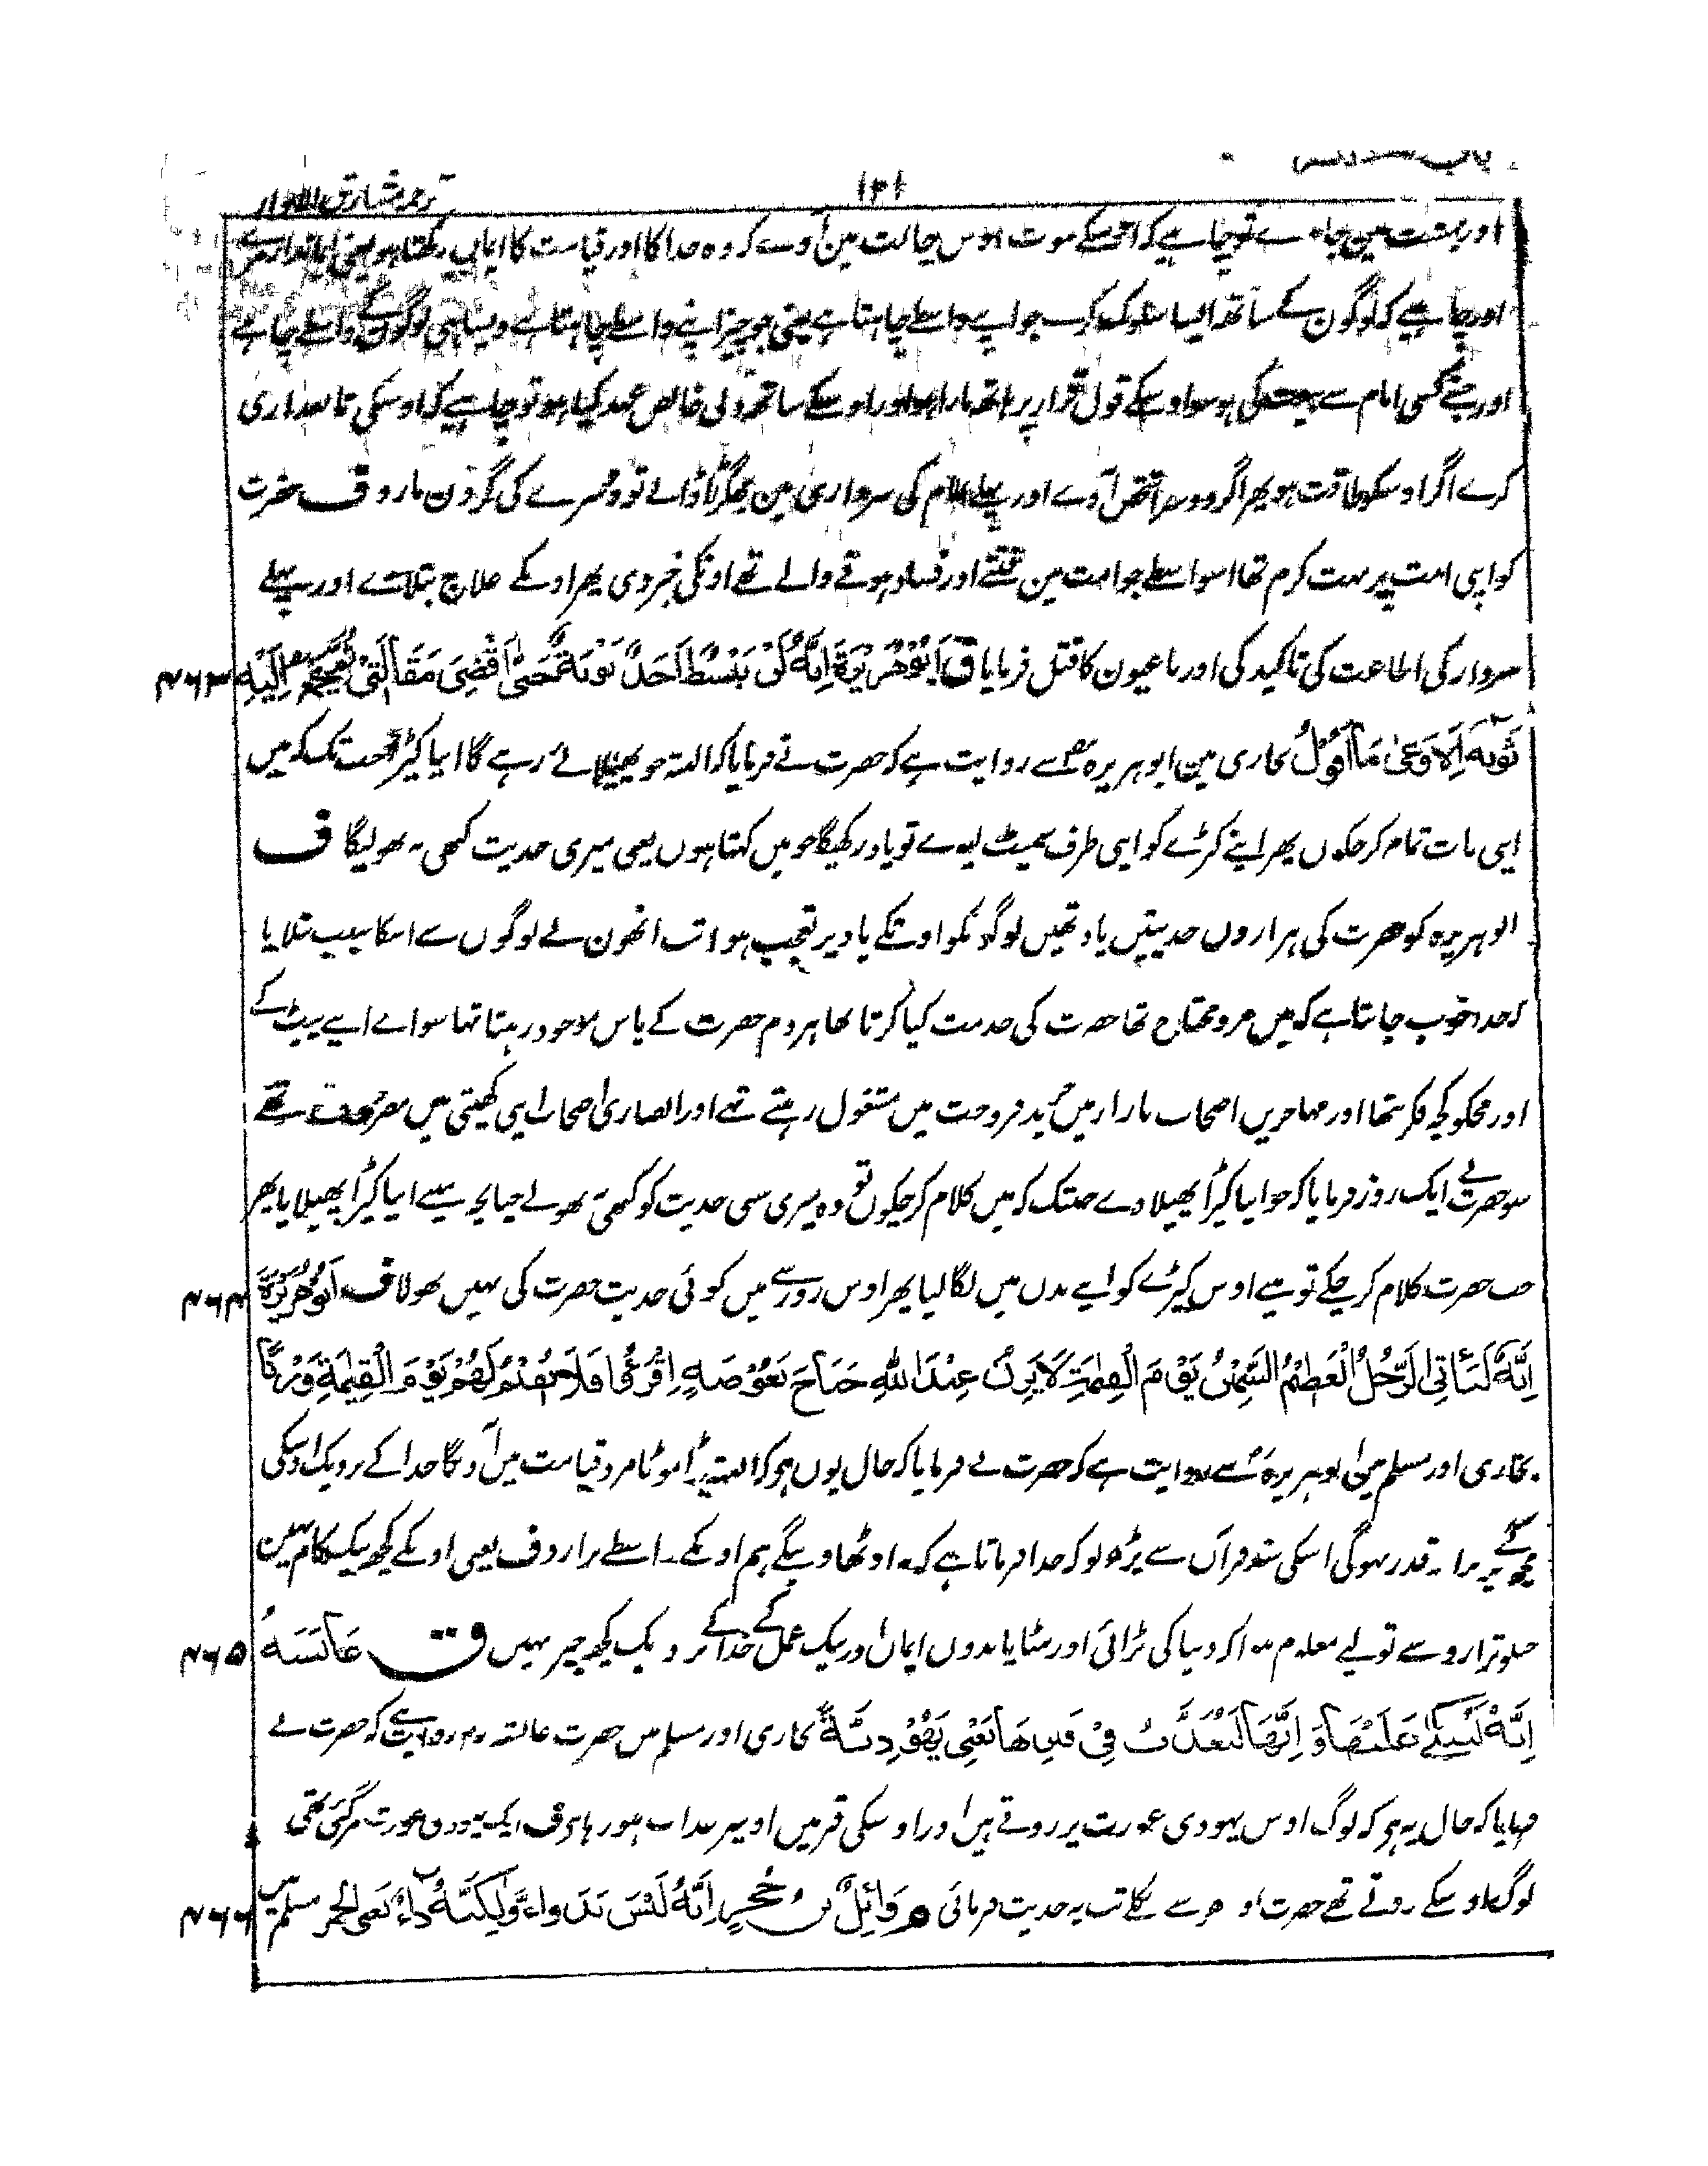 ترجمہ مشارق الانوار
۱۲۱
اور بہشت مین جاوے تو چاہیے کہ اوسکے موت اوس حالت مین آوے کہ وہ خدا کا اور قیامت کا ایمان رکھتا ہو یعنی ایماندار مرے
اور چاہیے کہ لوگون کے ساتھ ایسا سلوک کرے جو اپنے واسطے چاہتا ہے یعنی جو چیز اپنے واسطے چاہتا ہے ویسا ہی لوگون کے واسطے چاہے
اور جسنے کسی امام سے بیعت کی ہو سو اوسکے قول قرار پر ہاتھ مارا ہو اور اوسکے ساتھ دلی خالص عہد کیا ہو تو چاہیے کہ اوسکی تابعداری
کرے اگر اوسکو طاقت ہو پھر اگر دوسرا شخص آوے اور پہلے امام کی سرداری مین جھگڑا ڈالے تو دوسرے کی گردن مارو ف حضرت
کو اپنی امت پر بہت کرم تھا اسواسطے جو امت مین فتنے اور فساد ہونے والے تھے اونکی خبر دی پھر اوسکے علاج بتلائے اور پہلے
سردار کی اطاعت کی تاکید کی اور باغیون کا قتل فرمایا ق اَبُوْهُرَيْرَةَ اِنَّهُ لَنْ يَبْسُطَ اَحَدٌ ثَوْبَهُ حَتّٰى اَقْضِيَ مَقَالَتِيْ ثُمَّ يَجْمَعُ اِلَيْهِ ۴۶۳
ثَوْبَهُ اِلَّا وَعٰى مَا اَقُوْلُ بخاری مین ابوہریرہ سے روایت ہے کہ حضرت نے فرمایا کہ البتہ جو پھیلائے رہے گا اپنا کپڑا جب تک کہ میں
اپنی بات تمام کر چکوں پھر اپنے کپڑے کو اپنی طرف سمیٹ لیوے تو یاد رکھیگا جو میں کہتا ہوں یعنی میری حدیث کبھی نہ بھولیگا ف
ابو ہریرہ کو حضرت کی ہزاروں حدیثیں یاد تھیں لوگونکو اونکے یاد پر تعجب ہوا تب انھون نے لوگوں سے اسکا سبب بتلایا
کہ خدا خوب جانتا ہے کہ میں مرد محتاج تھا حضرت کی خدمت کیا کرتا تھا ہردم حضرت کے پاس موجود رہتا تھا سواے اپنے پیٹ کے
اور مجکو کچھ فکر نتھا اور مہاجرین اصحاب بازار میں خرید فروخت میں مشغول رہتے تھے اور انصاری اصحاب اپنی کھیتی میں مصروف تھے
سو حضرت نے ایک روز فرمایا کہ جو اپنا کپڑا پھیلا دے جبتک کہ میں کلام کر چکوں تو وہ میری سنی حدیث کو کبھی نہ بھولے چنانچہ مینے اپنا کپڑا پھیلایا پھر
جب حضرت کلام کر چکے تو مینے اوس کپڑے کو اپنے بدن میں لگا لیا پھر اوس روز سے میں کوئی حدیث حضرت کی نہیں بھولا ق اَبُوْهُرَيْرَةَ ۴۶۴
اِنَّهُ لَيَأْتِى الرَّجُلُ الْعَظِيْمُ السَّمِيْنُ يَوْمَ الْقِيٰمَةِ لَا يَزِنُ عِنْدَ اللّٰهِ جَنَاحَ بَعُوْضَةٍ اِقْرَءُوْا فَلَا نُقِيْمُ لَهُمْ يَوْمَ الْقِيٰمَةِ وَزْنًا
بخاری اور مسلم میں ابو ہریرہ سے روایت ہے کہ حضرت نے فرمایا کہ حال یوں ہے کہ البتہ بڑا موٹا مرد قیامت میں آویگا خدا کے نزدیک اوسکی
مچھر کے پر برابر قدر نہوگی اسکی سند قرآن سے پڑھ لو کہ خدا فرماتا ہے کہ نہ اوٹھاوینگے ہم اونکے واسطے ترازو ف یعنی اونکے کچھ نیک کام نہین
جو ترازو سے تولے معلوم ہوا کہ دنیا کی بڑائی اور مٹاپا بدون ایمان اور نیک عمل کے خدا کے نزدیک کچھ چیز نہیں ق عَائِشَةُ ۴۶۵
اِنَّهُ لَيُبْكٰى عَلَيْهَا وَ اِنَّهَا لَتُعَذَّبُ فِيْ قَبْرِهَا يَعْنِيْ يَهُوْدِيَّةً بخاری اور مسلم میں حضرت عائشہ رض روایت ہے کہ حضرت نے
فرمایا کہ حال یہ ہے کہ لوگ اوس یہودی عورت پر روتے ہیں اور اوسکی قبر میں اوسپر عذاب ہو رہا ہے ف ایک یہودی عورت مرگئی تھی
لوگ اوسکے روتے تھے حضرت اودھر سے نکلے تب یہ حدیث فرمائی م وَائِلُ بْنُ حُجْرٍ اِنَّهُ لَيْسَ بِدَوَاءٍ وَلٰكِنَّهُ دَاءٌ يَعْنِى الْخَمْرَ مسلم میں ۴۶۶